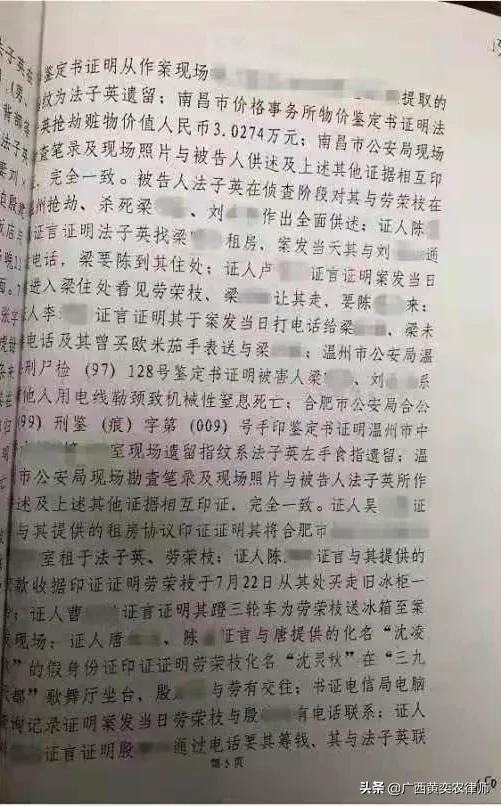 鉴定书证明从作案现场 提取的
纹为法子英遗留；南昌市价格事务所物价鉴定书证明法
英抢劫赃物价值人民币3.0274万元；南昌市公安局现场
查笔录及现场照片与被告人供述及上述其他证据相互印
，完全一致。被告人法子英在侦查阶段对其与劳荣枝在
州抢劫、杀死梁 、刘 作出全面供述；证人陈
证言证明法子英找梁 租房，案发当天其与刘 通
电话，梁要陈到其住处；证人卢 证言证明案发当日
进入梁住处看见劳荣枝、梁 让其走，要陈 来；
人李 证言证明其于案发当日打电话给梁 、梁未
电话及其曾买欧米茄手表送与梁 ；温州市公安局温
刑尸检（97）128号鉴定书证明被害人梁 、刘 系
他人用电线勒颈致机械性窒息死亡；合肥市公安局合公
（99）刑鉴（痕）字第（009）号手印鉴定书证明温州市中
室现场遗留指纹系法子英左手食指遗留；温
市公安局现场勘查笔录及现场照片与被告人法子英所作
述及上述其他证据相互印证，完全一致。证人吴 证
与其提供的租房协议印证证明其将合肥市
室租于法子英、劳荣枝；证人陈 证言与其提供的
款收据印证证明劳荣枝于7月22日从其处买走旧冰柜一
；证人曹 证言证明其蹬三轮车为劳荣枝送冰箱至案
现场；证人唐 、陈 证言与唐提供的化名“沈凌
秋”的假身份证印证证明劳荣枝化名“沈灵秋”在“三九
都”歌舞厅坐台，殷 与劳有交往；书证电信局电脑
询记录证明案发当日劳荣枝与殷 有电话联系；证人
证言证明殷 通过电话要其筹钱、其与法子英联
第5页
150
头条 @广西黄奕农律师